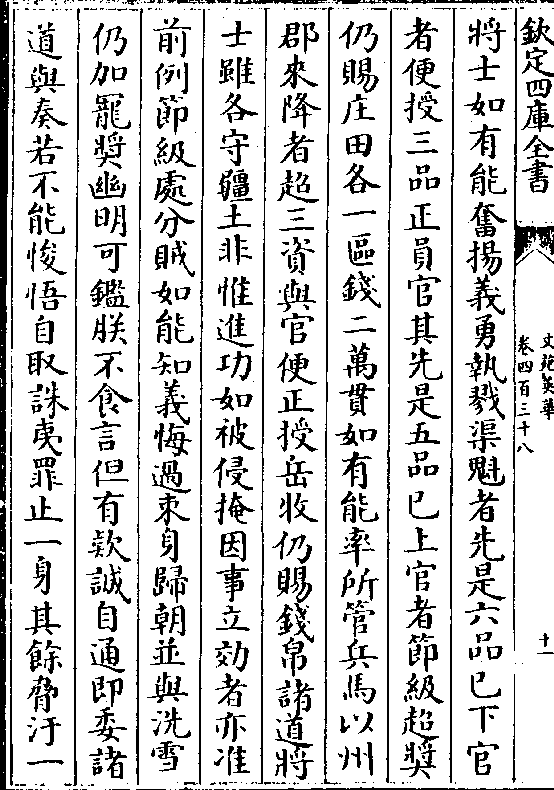 欽定四庫全書
文苑英華
卷四百三十八
十一
將士如有能奮揚義勇執戮渠魁者先是六品已下官
者便授三品正員官其先是五品已上官者節級超奬
仍賜庄田各一區錢二萬貫如有能率所管兵馬以州
郡來降者超三資與官便正授岳牧仍賜錢帛諸道將
士雖各守疆土非惟進功如被侵掩因事立効者亦准
前例節級處分賊如能知義悔過束身歸朝並與洗雪
仍加寵奬幽明可鑑朕不食言但有欵誠自通即委諸
道與奏若不能悛悟自取誅夷罪止一身其餘脅汙一